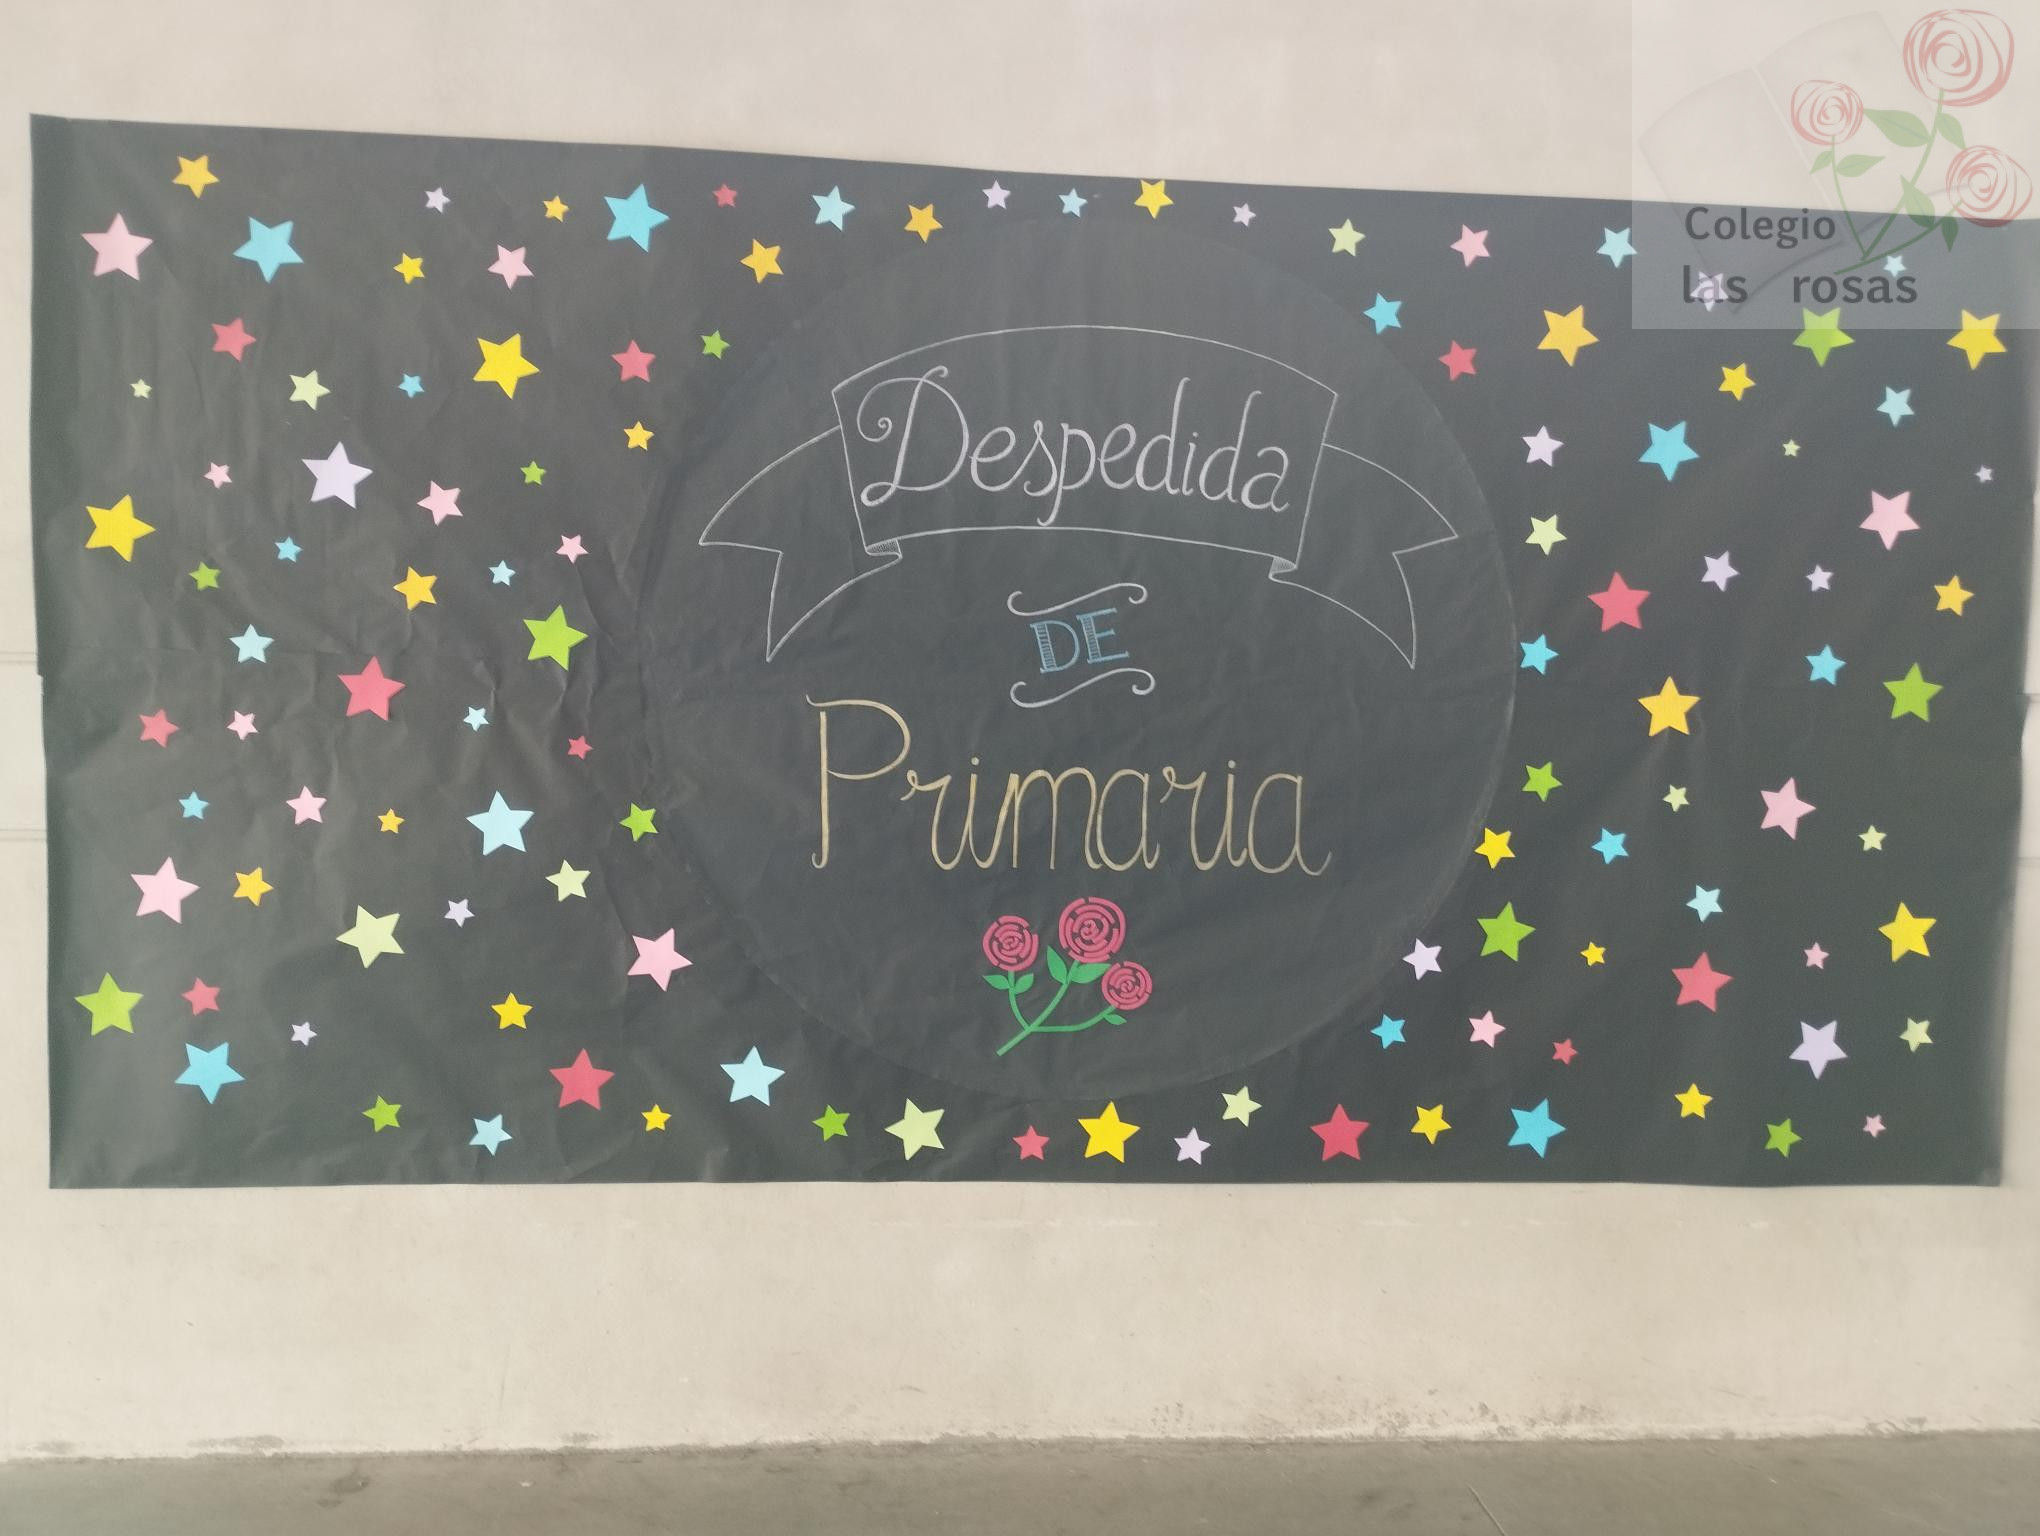 Colegio
las rosas
Despedida
DE
Primaria